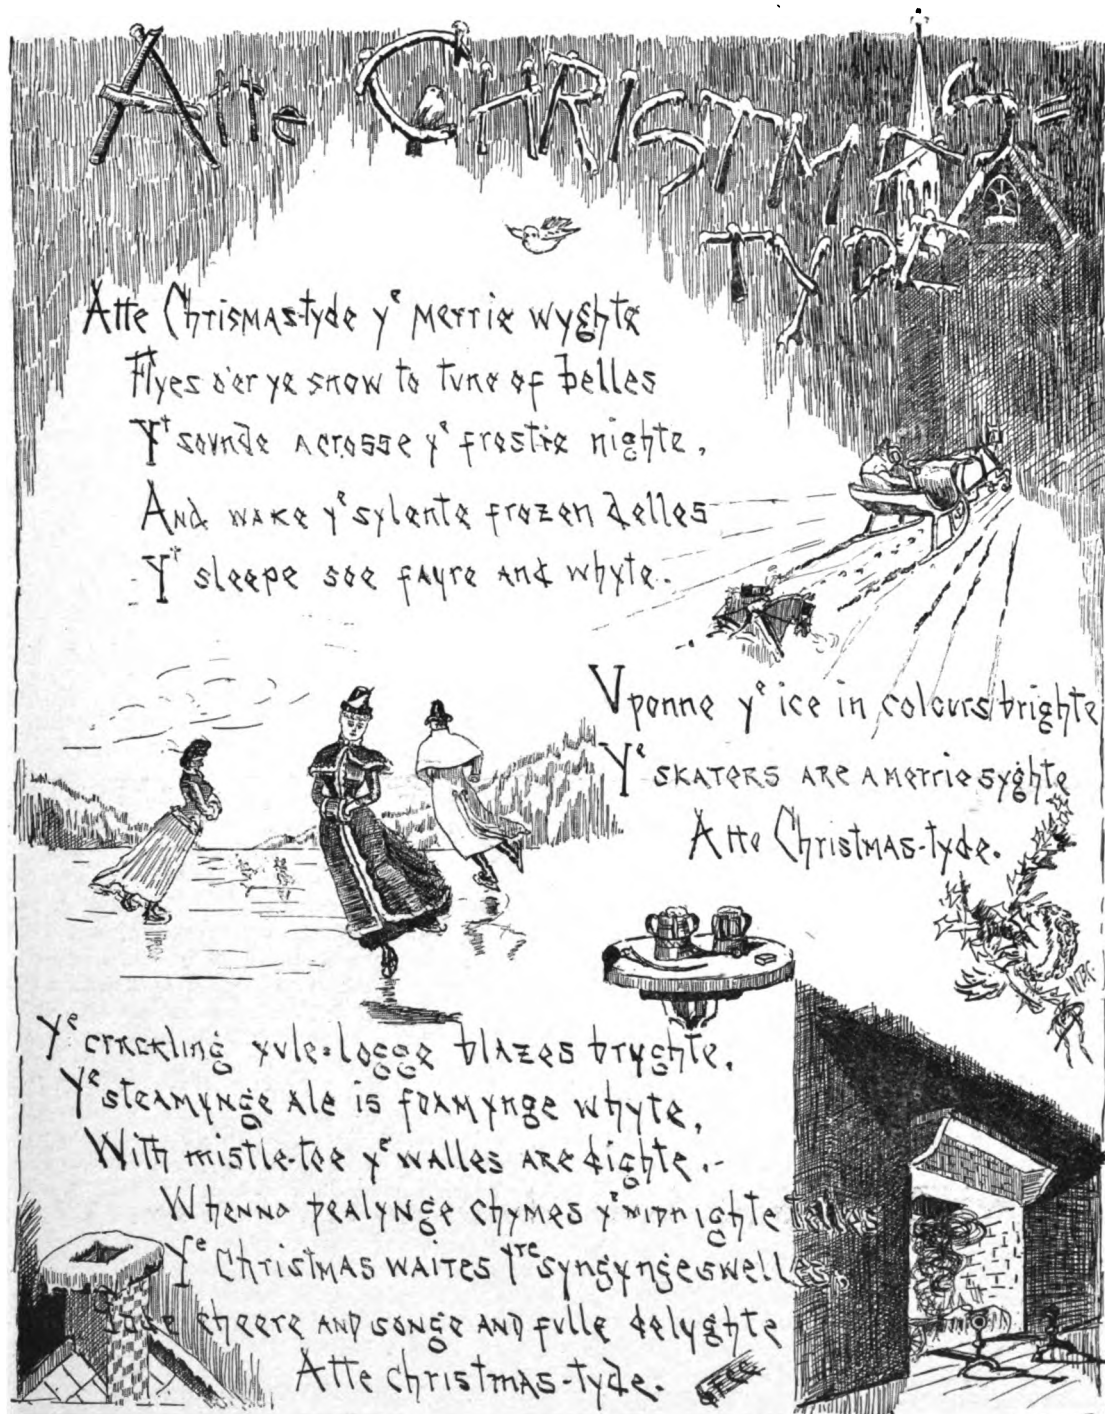 Atte CHRISTMAS=
TYDE
Atte Chrismas-tyde yᵉ merrie wyghte
Flyes o'er ye snow to tune of belles
Yᵗ sovnde acrosse yᵉ frostie nighte,
And wake yᵉ sylente frozen delles
Yᵗ sleepe soe fayre and whyte.
Vponne yᵉ ice in colours brighte
Yᵉ skaters are a merrie syghte
Atte Christmas-tyde.
Yᵉ crackling yvle-logge blazes bryghte,
Yᵉ steamynge ale is foamynge whyte,
With mistle-toe yᵉ walles are dighte.-
Whenne pealynge chymes yᵉ midnighte telles
Yᵉ Christmas waites yʳᵉ syngynge swelles,
gode cheere and songe and fulle delyghte
Atte Christmas-tyde.